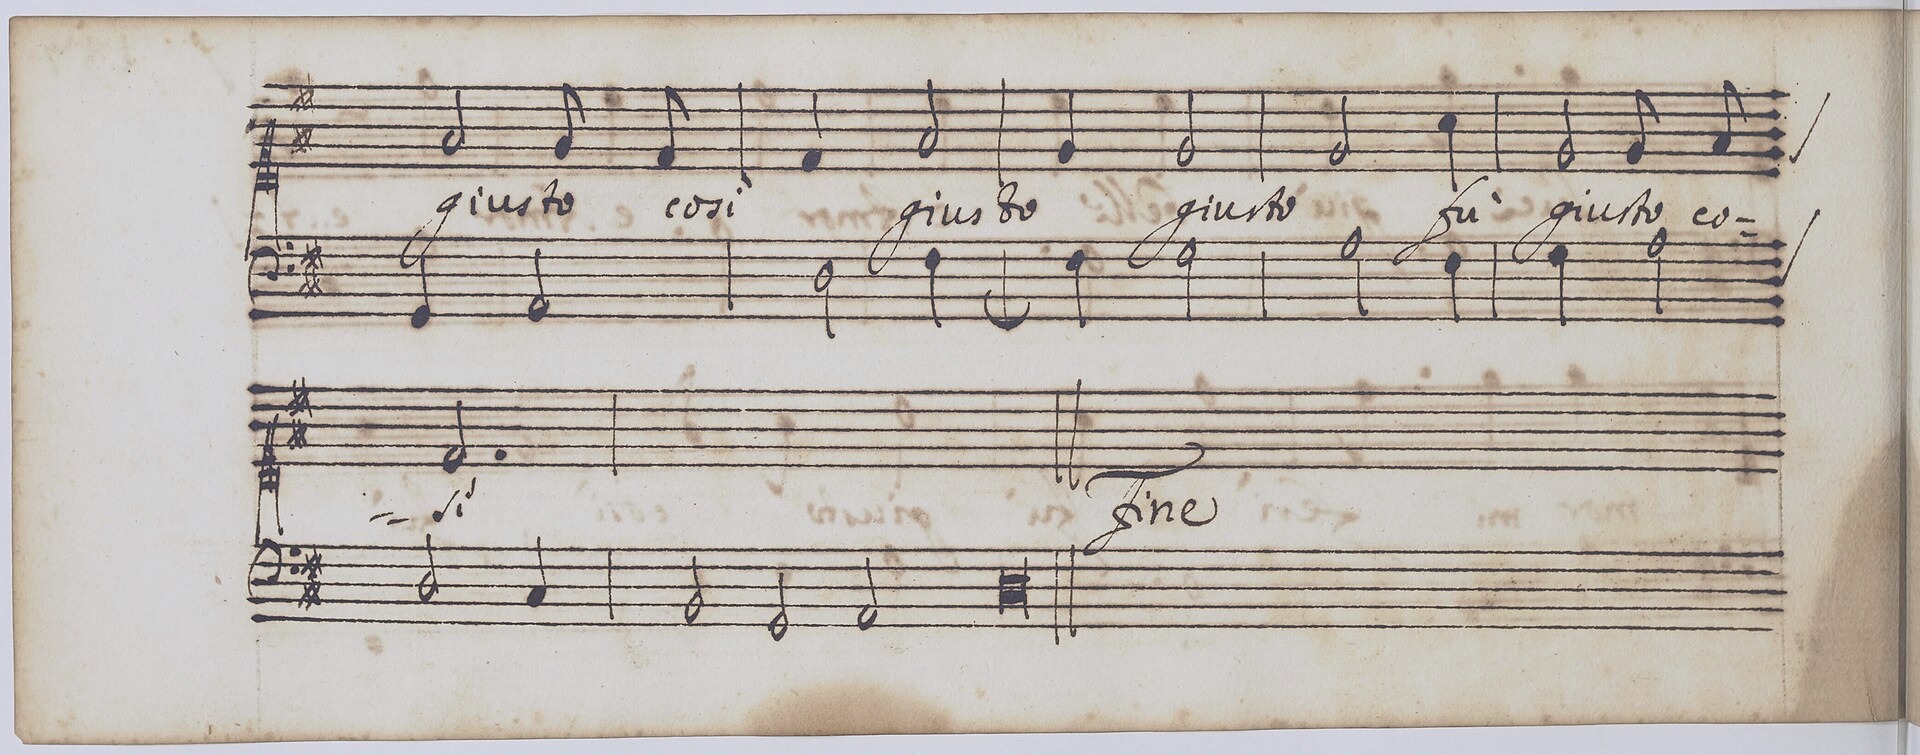 giusto così giusto giusto fu' giusto co=
-- sì fine